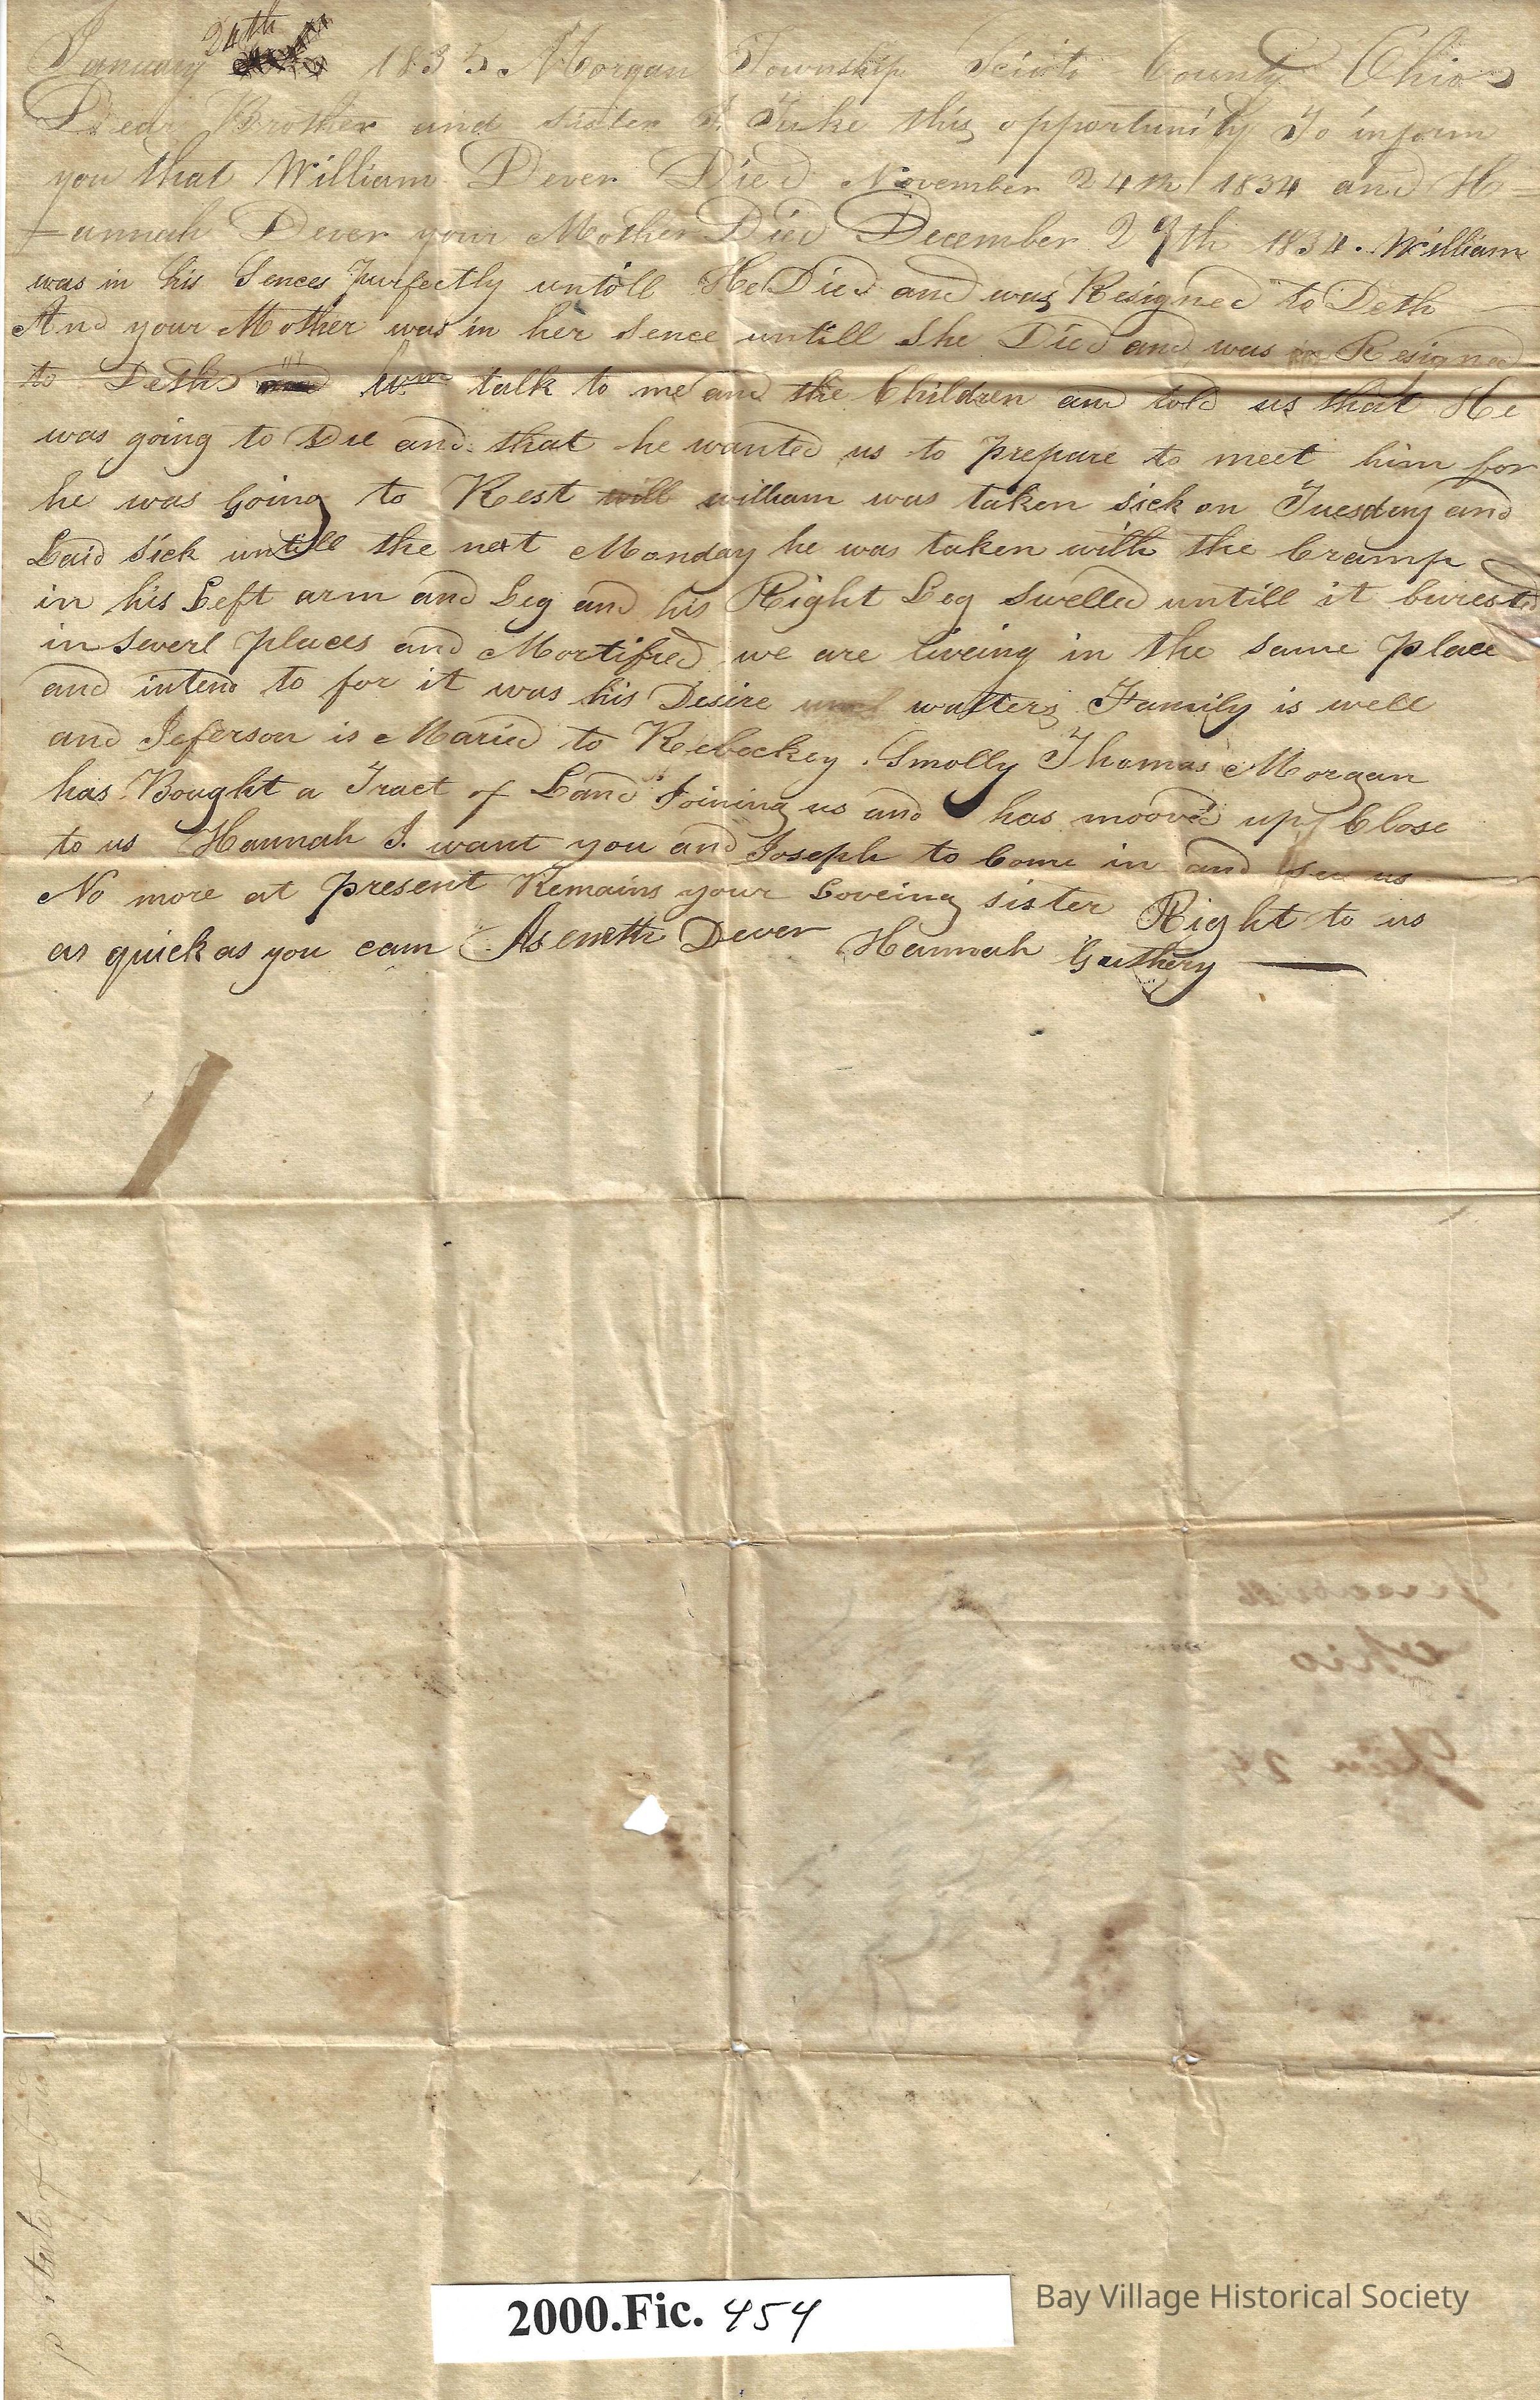 January 24th 1835. Morgan Township Scioto County Ohio
Dear Brother and sister I. Take this opportunity To inform
you that William Dever Died November 24th 1834 and H=
=annah Dever your Mother Died December 29th 1834. William
was in his Sences Purfectly untill He Died and was Resigned to Deth
And your Mother was in her sence untill She Died and was Resigned
to Deth Wm talk to me and the Children and told us that He
was going to Die and that he wanted us to prepare to meet him for
he was Going to Rest will william was taken sick on Tuesday and
Laid sick untill the next Monday he was taken with the Cramp
in his Left arm and Leg and his Right Leg Swelled untill it burested
in severl places and Mortified we are liveing in the same place
and intend to for it was his Desire walters Family is well
and Jeferson is Maried to Rebeckey Smolly Thomas Morgan
has Bought a Tract of Land Joining us and has mooved up Close
to us Hannah I. want you and Joseph to Come in and see us
No more at present Remains your Loveing sister Right to us
as quick as you cam Aseneth Dever Hannah Guthery
Ohio
2000.Fic. 454
Bay Village Historical Society